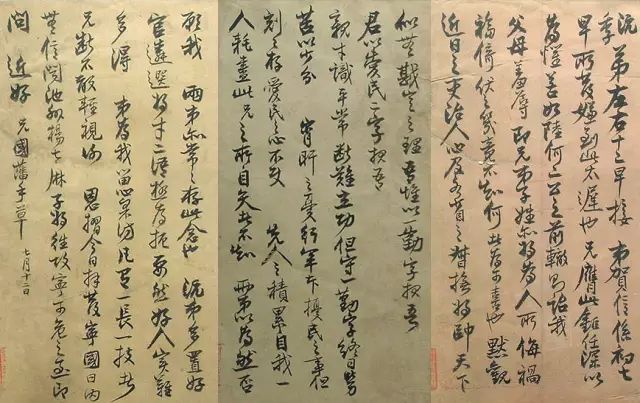 沅季 弟左右十二早接 弟賀信係初七
早所發嫌到此太遲也兄膺此鉅任深以
為懼若如陸何二公之前轍則詒我
父母羞辱即兄弟子姪亦將為人所侮禍
福倚伏之幾竟不知何者為可喜也默觀
近日之吏治人心及各省之督撫將帥天下
似無戡定之理吾惟以一勤字報吾
君以愛民二字報吾
親才識平常斷難立功但守一勤字終日勞
苦以少分 宵旰之憂行軍本擾民之事但
刻刻存愛民之心不使 先人之積累自我一
人耗盡此兄之所自矢者不知 兩弟以為然否
願我 兩弟亦常常存此念也 沅弟多置好
官遴選將才二語極為扼要然好人實難
多得 弟為我留心采訪凡有一長一技者
兄斷不敢輕視謝 恩摺今日拜發寧國日內
無信聞池州楊七麻子將往攻寧可危之至即
問 近好 兄國藩手草 七月十二日